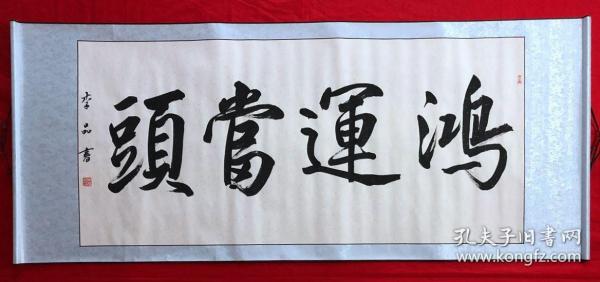 鴻運當頭
李品書
孔夫子旧書网
www.kongfz.com